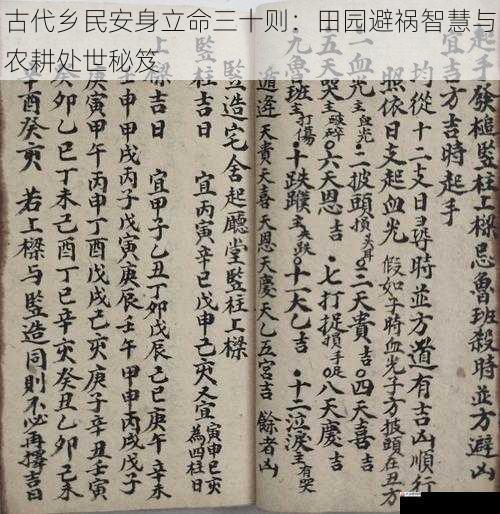 古代乡民安身立命三十则：田园避祸智慧与
农耕处世秘笈
起手發槌監柱上樑忌魯班殺時並方避凶
宜吉方吉時起手
均從十二支日尋時並方道有吉凶順行
照依日支起血光 假如子時血光子方披頭在丑方
一血光凶 二披頭損 二天貴吉 四天喜吉
天哭破碎 六天恩吉 七打捉損手足 八天慶吉
魯班打傷 十跌蹼主 跌 十一天乙吉 十二泣淚主有哭
逢 天貴天喜天恩天慶天乙五宮吉 餘者凶
監造宅舍起廳堂監柱上樑
監柱吉日 宜丙寅辛巳戊申己亥又宜寅申巳亥為四柱日
上樑吉日 宜甲子乙丑丁卯戊辰己巳庚午辛未
壬申甲戌丙子戊寅庚辰壬午甲申丙戌戊子
庚寅甲午丙申丁酉戊戌己亥庚子辛丑壬寅
癸卯乙巳丁未己酉丁巳辛亥癸丑乙卯己未
辛酉癸亥 若上樑與監造同則不必再擇吉日